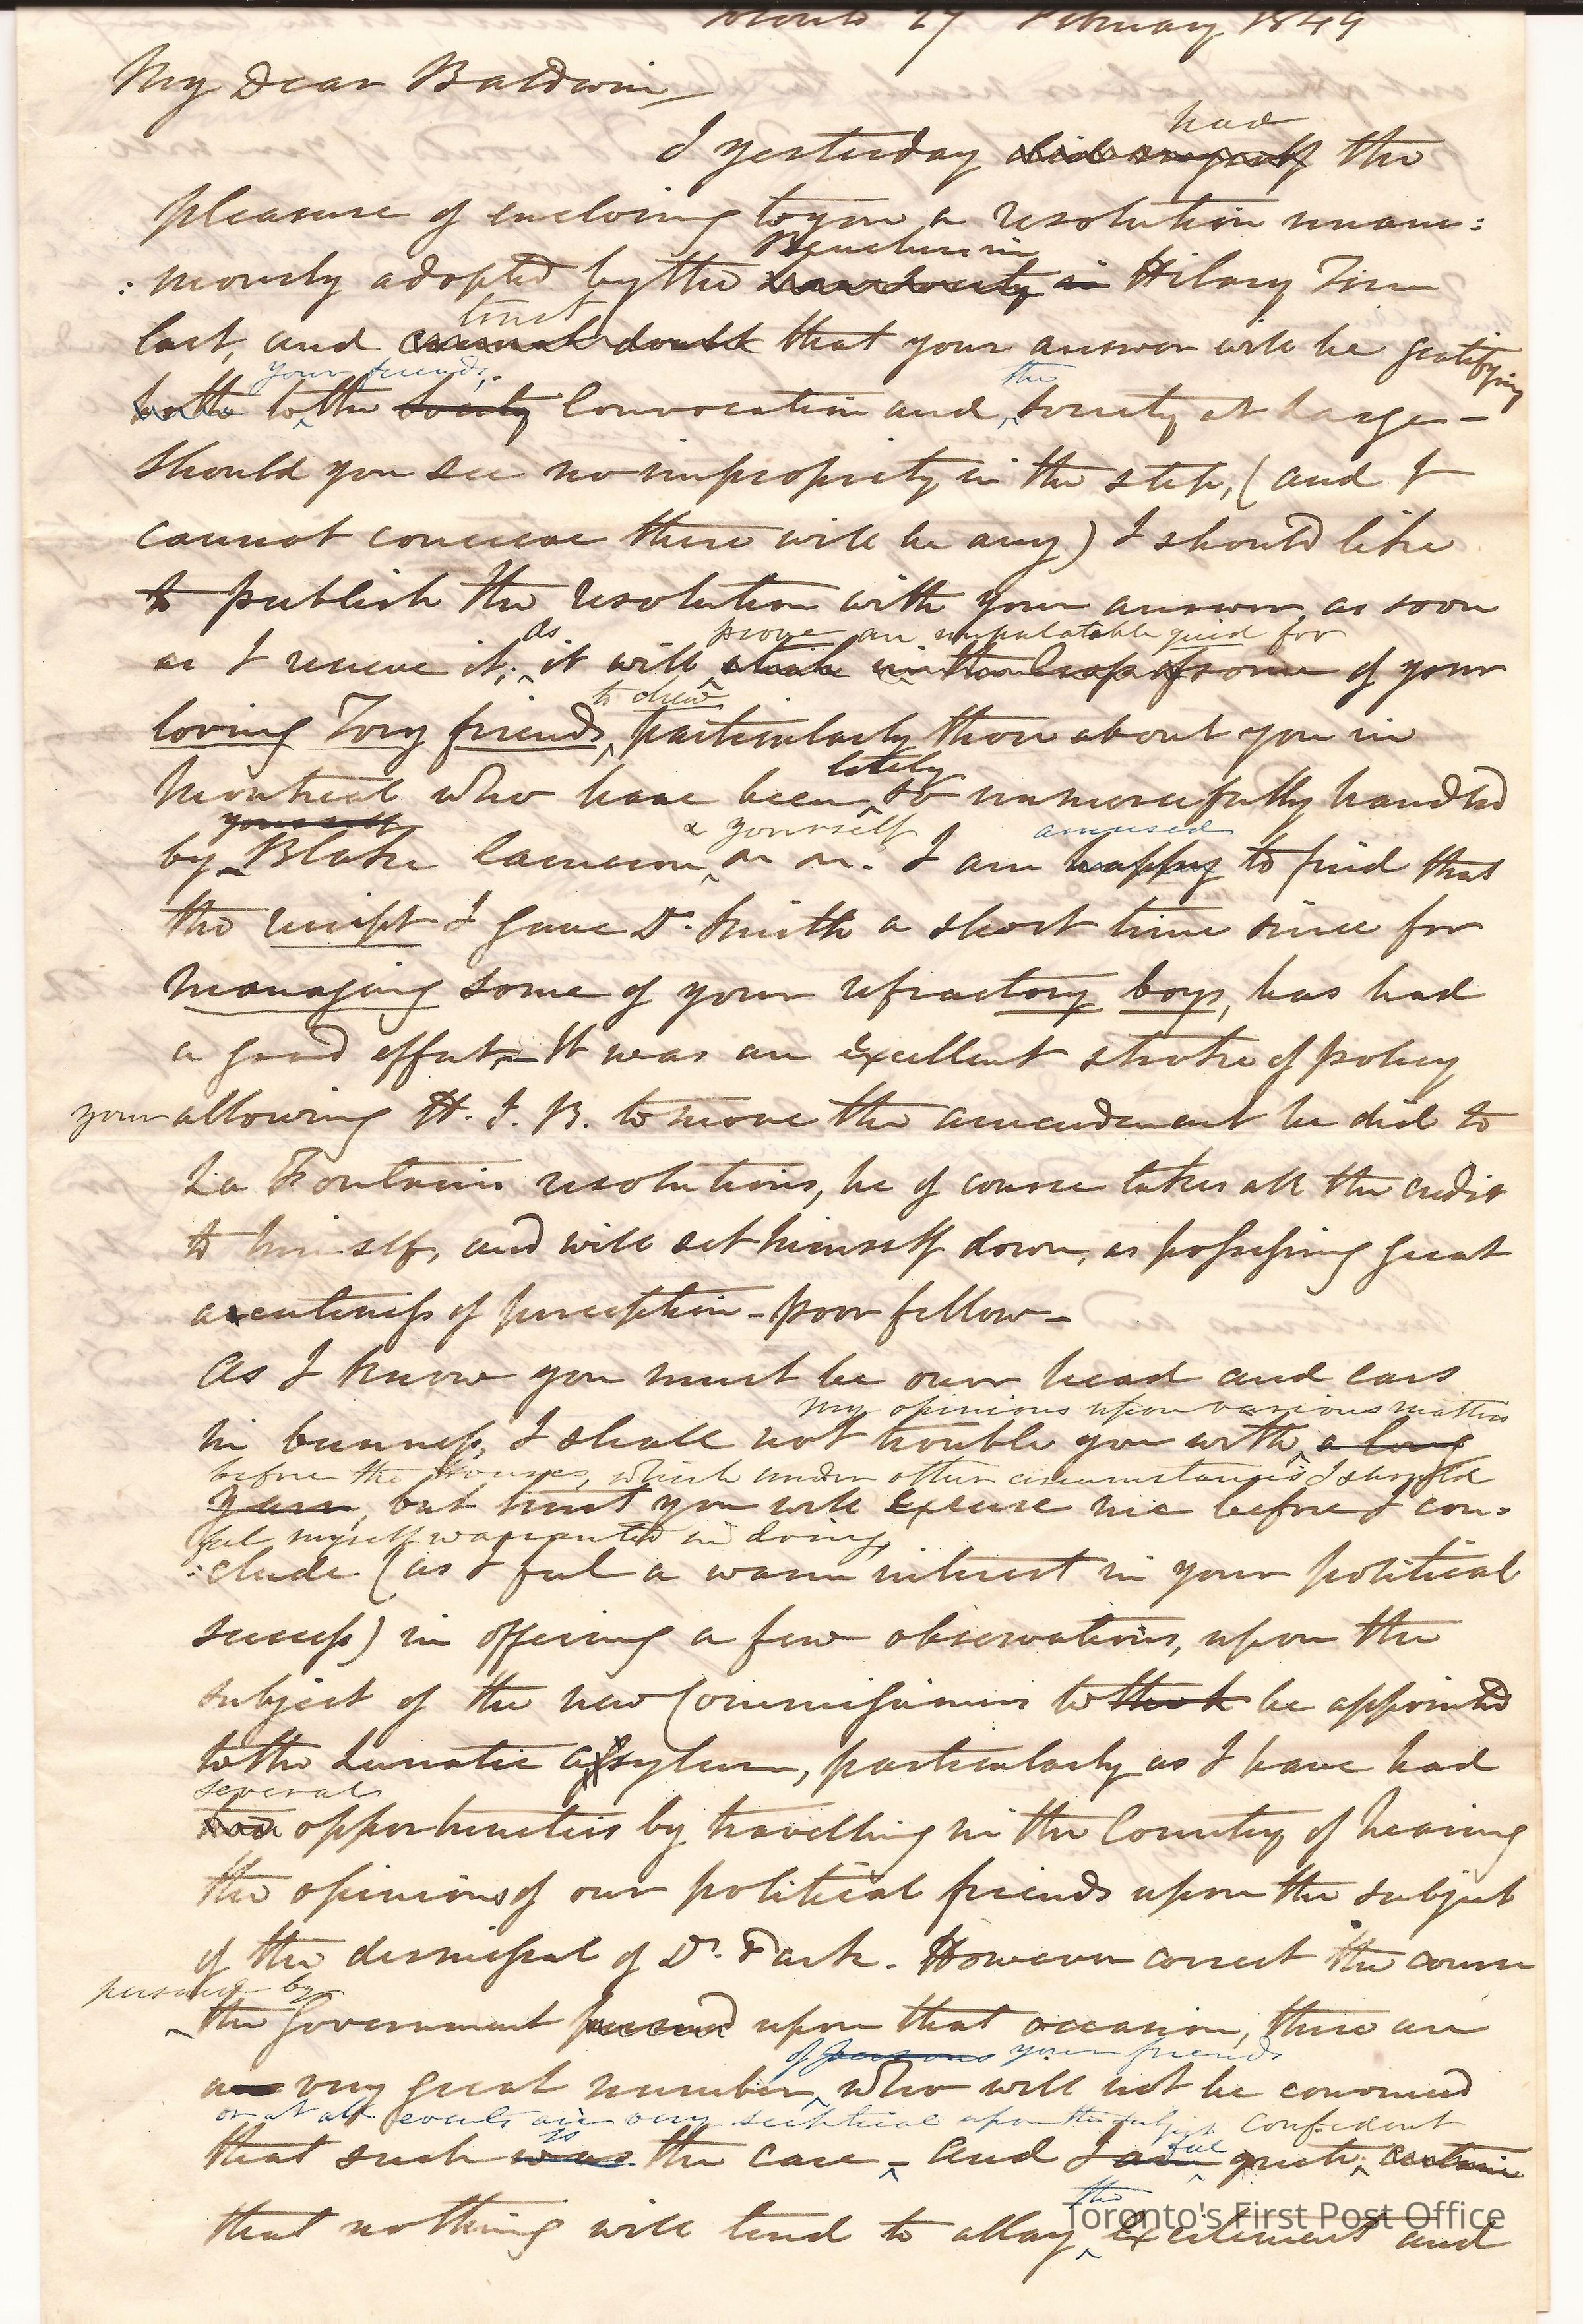 Toronto 27 February 1849
My Dear Baldwin,
had
I yesterday did myself the
pleasure of enclosing to you a resolution unani=
Benchers in
:mously adopted by the Law Society in Hilary Term
trust
last, and cannot doubt that your answer will be gratifying
your friends, the
both to the Society Convocation and society at large -
Should you see no impropriety in the step, (and I
cannot conceive there will be any) I should like
to publish the resolution with your answer as soon
as prove an unpalatable quid for
as I receive it, it will stick in the craps of some of your
to chew
loving Tory friends, particularly those about you in
lately
Montreal who have been so unmercifully handled
yourself & yourself amused
by Blake Cameron I am happy to find that
the receipt I gave Dr. Smith a short time since for
managing some of your refractory boys, has had
a good effect - It was an excellent stroke of policy
your allowing H. J. B. to move the amendment he did to
La Fontain's resolutions, he of course takes all the credit
to himself, and will set himself down, as possessing great
acuteness of perception - poor fellow -
As I know you must be over head and ears
my opinions upon various matters
in business, I shall not trouble you with a long
before the Houses, which under other circumstances I should
yarn, but trust you will excuse me before I con=
feel myself warranted in doing,
:clude (as I feel a warm interest in your political
success) in offering a few observations, upon the
subject of the new Commissioners to be appointed
to the Lunatic Asylum, particularly as I have had
several
had opportunities by travelling in the Country of hearing
the opinions of our political friends upon the subject
of the dismissal of Dr. Park. However correct the course
pursued by
the Government pursued upon that occasion, there are
of persons your friends
a very great number, who will not be convinced
or at all events are very sceptical upon the subject confident
is feel
that such was the case - and I am quite certain
the
that nothing will tend to allay excitement and
Toronto's First Post Office